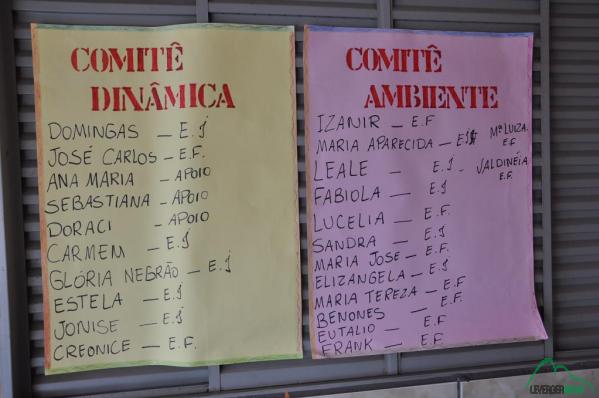 COMITÊ
DINÂMICA
DOMINGAS — E.J
JOSÉ CARLOS — E.F.
ANA MARIA - APOIO
SEBASTIANA - APOIO
DORACI - APOIO
CARMEM — E.J
GLÓRIA NEGRÃO — E.J
ESTELA — E.J
JONISE — E.J
CREONICE — E.F.
COMITÊ
AMBIENTE
IZANIR — E.F
MARIA APARECIDA — E.J Mª LUIZA E.F
LEALE — E.J - VALDINÉIA E.F.
FABIOLA — E.J
LUCELIA — E.F.
SANDRA — E.J
MARIA JOSE — E.F.
ELIZANGELA — E.J
MARIA TEREZA — E.F
BENONES — E.F.
EUTALIO — E.F
FRANK — E.F.
LEVERGER